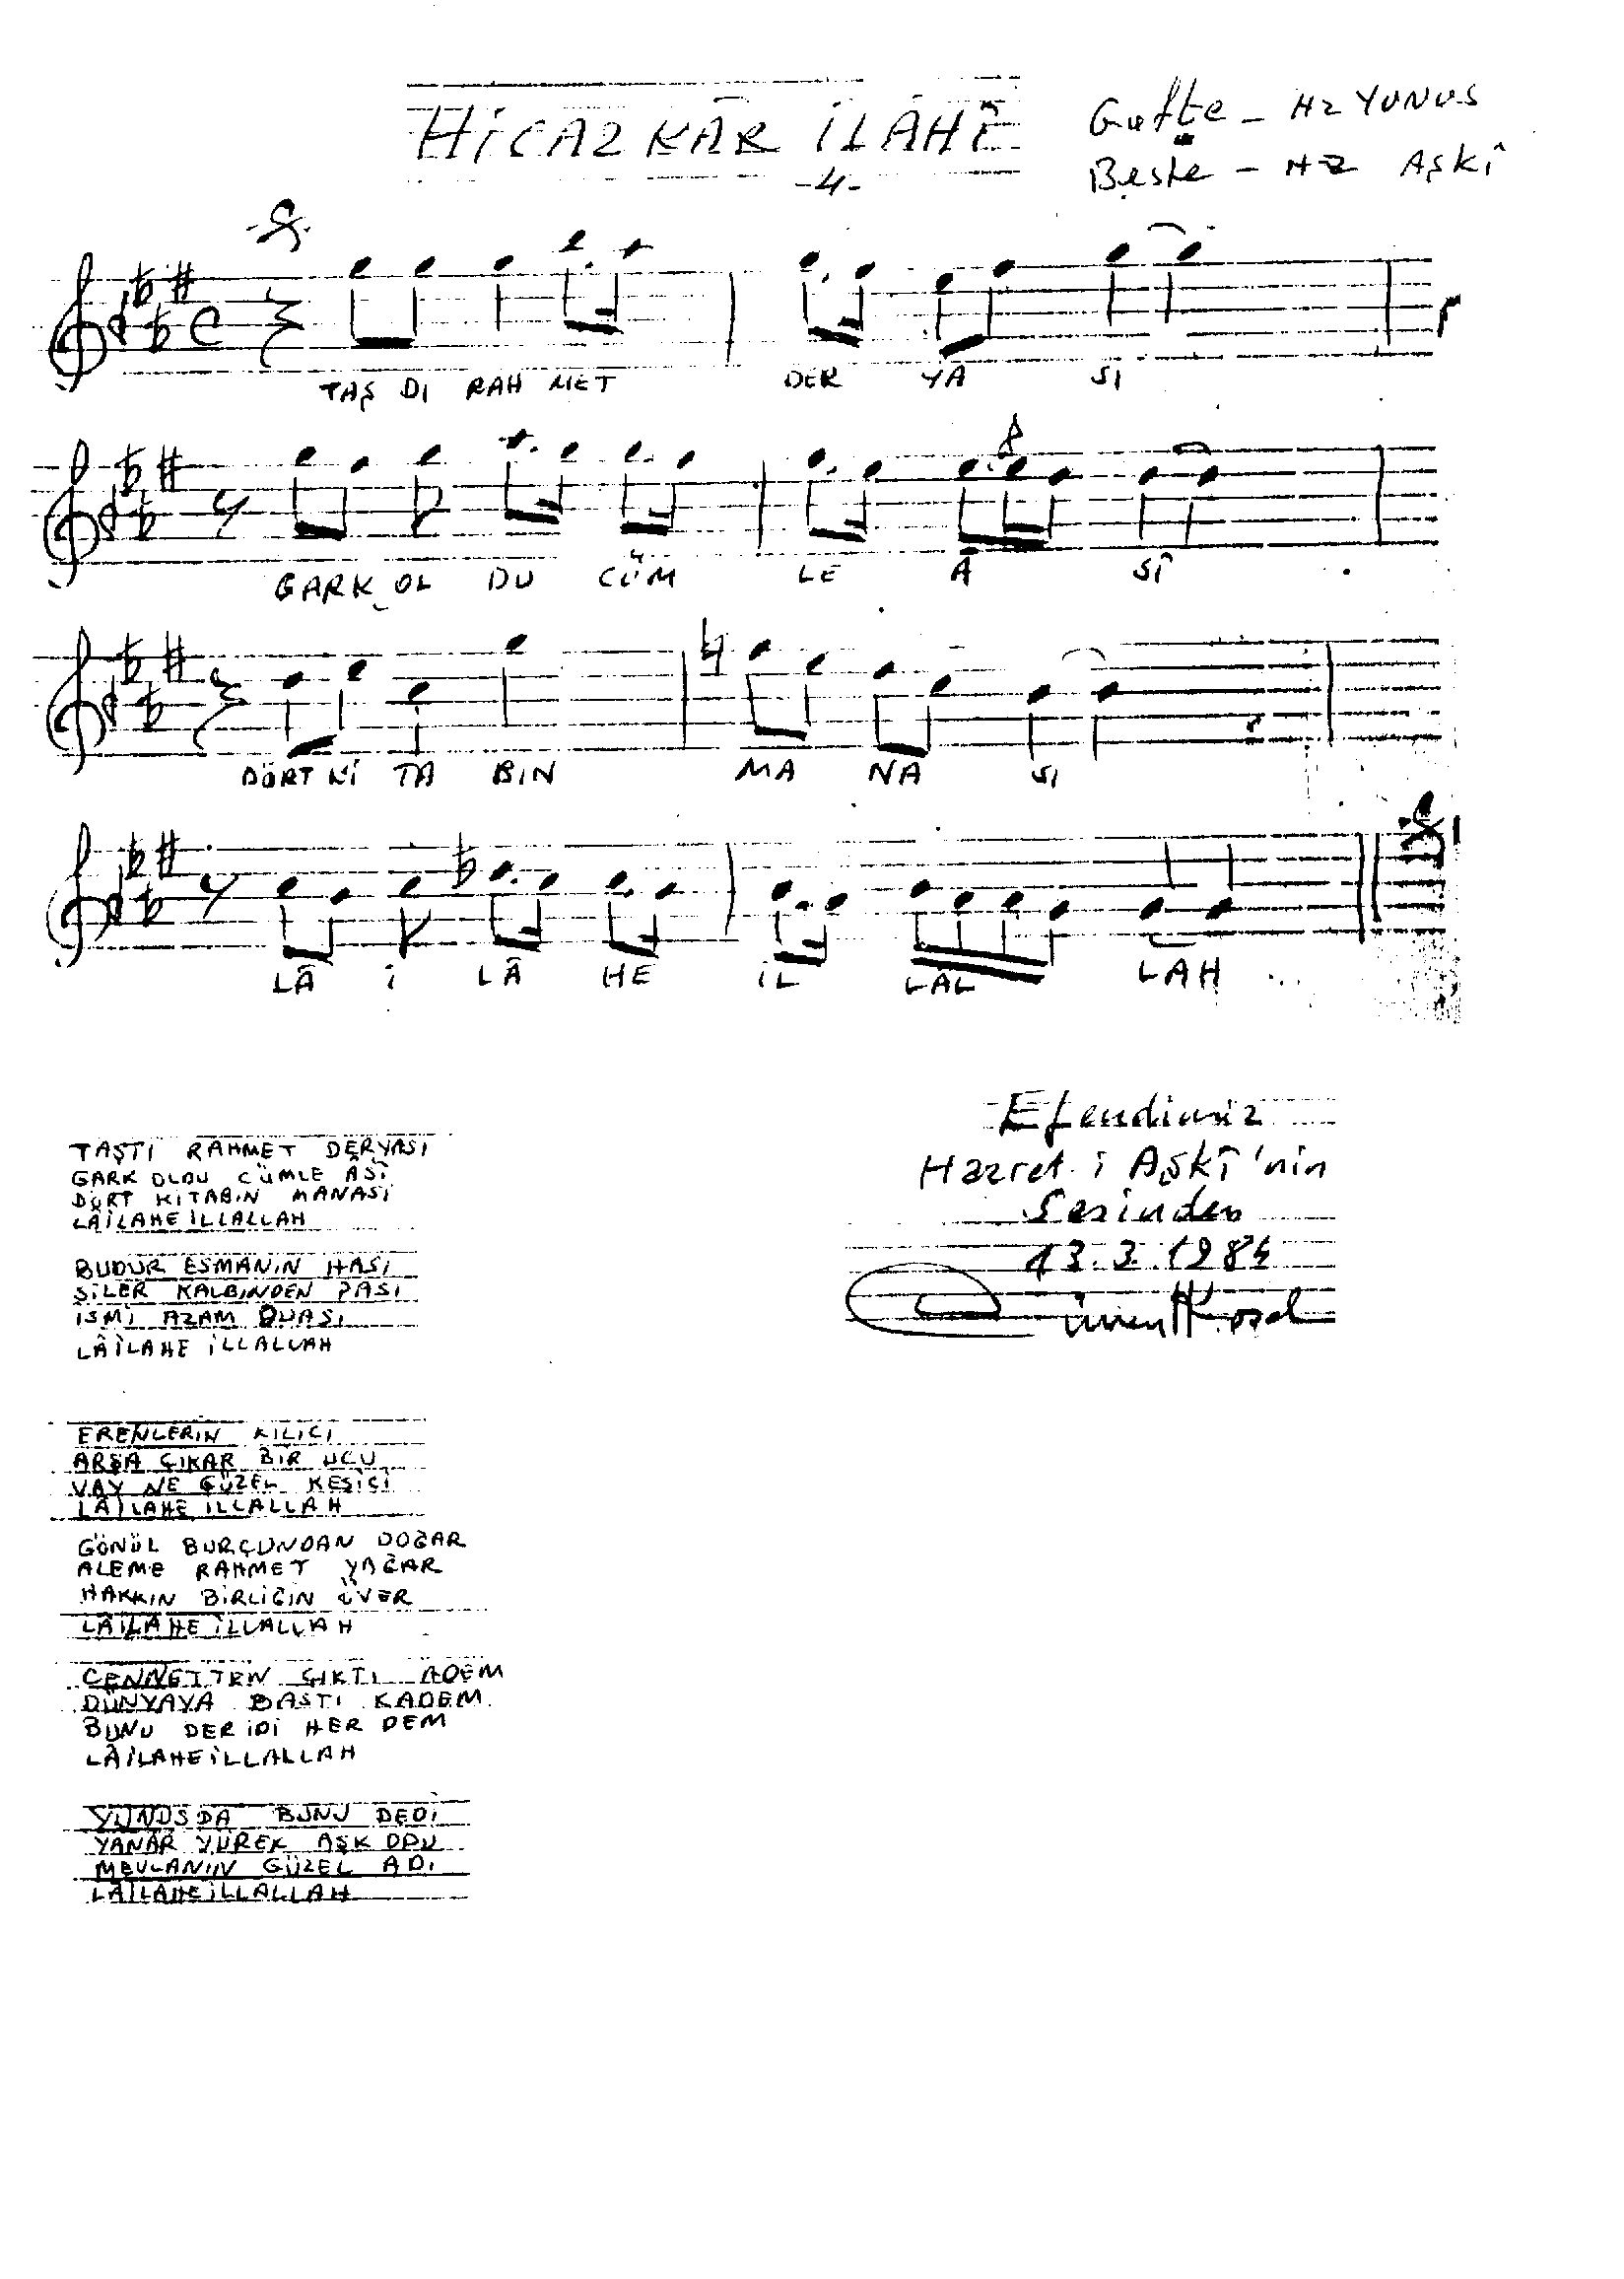 HİCAZKÂR İLÂHÎ
-4-
Gufte - HZ YUNUS
Beste - HZ AŞKÎ
TAŞ DI RAH MET DER YA SI
GARK OL DU CÜM LE Â SÎ
DÖRT Kİ TA BIN MA NA SI
LÂ İ LÂ HE İL LAL LAH
TAŞTI RAHMET DERYASI
GARK OLDU CÜMLE ÂSÎ
DÖRT KİTABIN MANASİ
LÂİLAHE İLLALLAH
BUDUR ESMANIN HASI
SİLER KALBINDEN PASI
İSMİ AZAM DUASI
LÂİLAHE İLLALLAH
ERENLERİN KILICI
ARŞA ÇIKAR BİR UCU
VAY NE GÜZEL KESİCİ
LÂİLAHE İLLALLAH
GÖNÜL BURÇUNDAN DOĞAR
ALEME RAHMET YAĞAR
HAKKIN BİRLİĞİN ÖVER
LÂİLAHE İLLALLAH
CENNETTEN ÇIKTI ADEM
DÜNYAYA BASTI KADEM
BUNU DER İDİ HER DEM
LÂİLAHEİLLALLAH
YUNUSDA BUNU DEDİ
YANAR YÜREK AŞK ODU
MEVLANIN GÜZEL ADI
LÂİLAHEİLLALLAH
Efendimiz
Hazret-i Aşkî'nin
Sesinden
13.3.1984